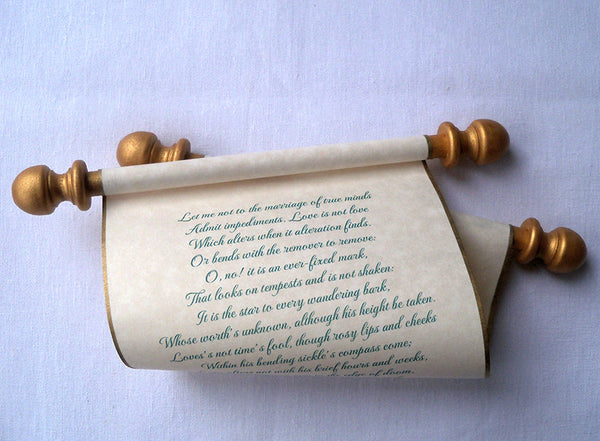 Let me not to the marriage of true minds
Admit impediments. Love is not love
Which alters when it alteration finds.
Or bends with the remover to remove:
O, no! it is an ever-fixed mark,
That looks on tempests and is not shaken:
It is the star to every wandering bark,
Whose worth's unknown, although his height be taken.
Loves's not time's fool, though rosy lips and cheeks
Within his bending sickle's compass come;
not with his brief hours and weeks,
of doom.